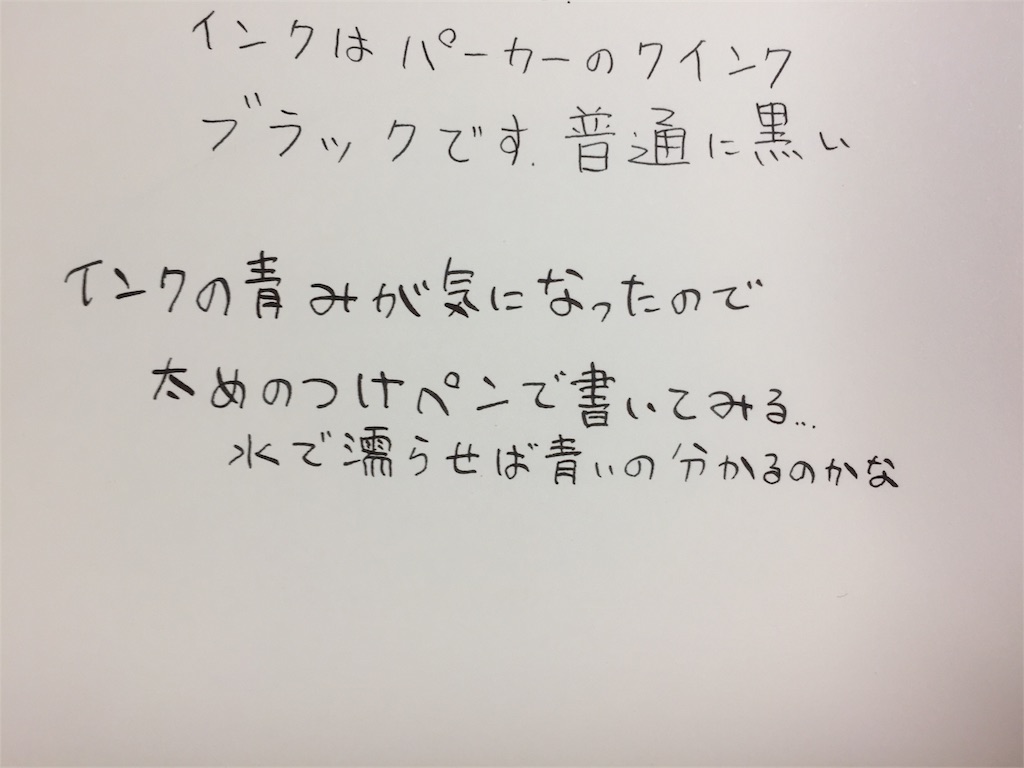 インクは パーカーのクインク
ブラックです. 普通に黒い
インクの青みが気になったので
太めのつけペンで書いてみる...
水で濡らせば青いの分かるのかな